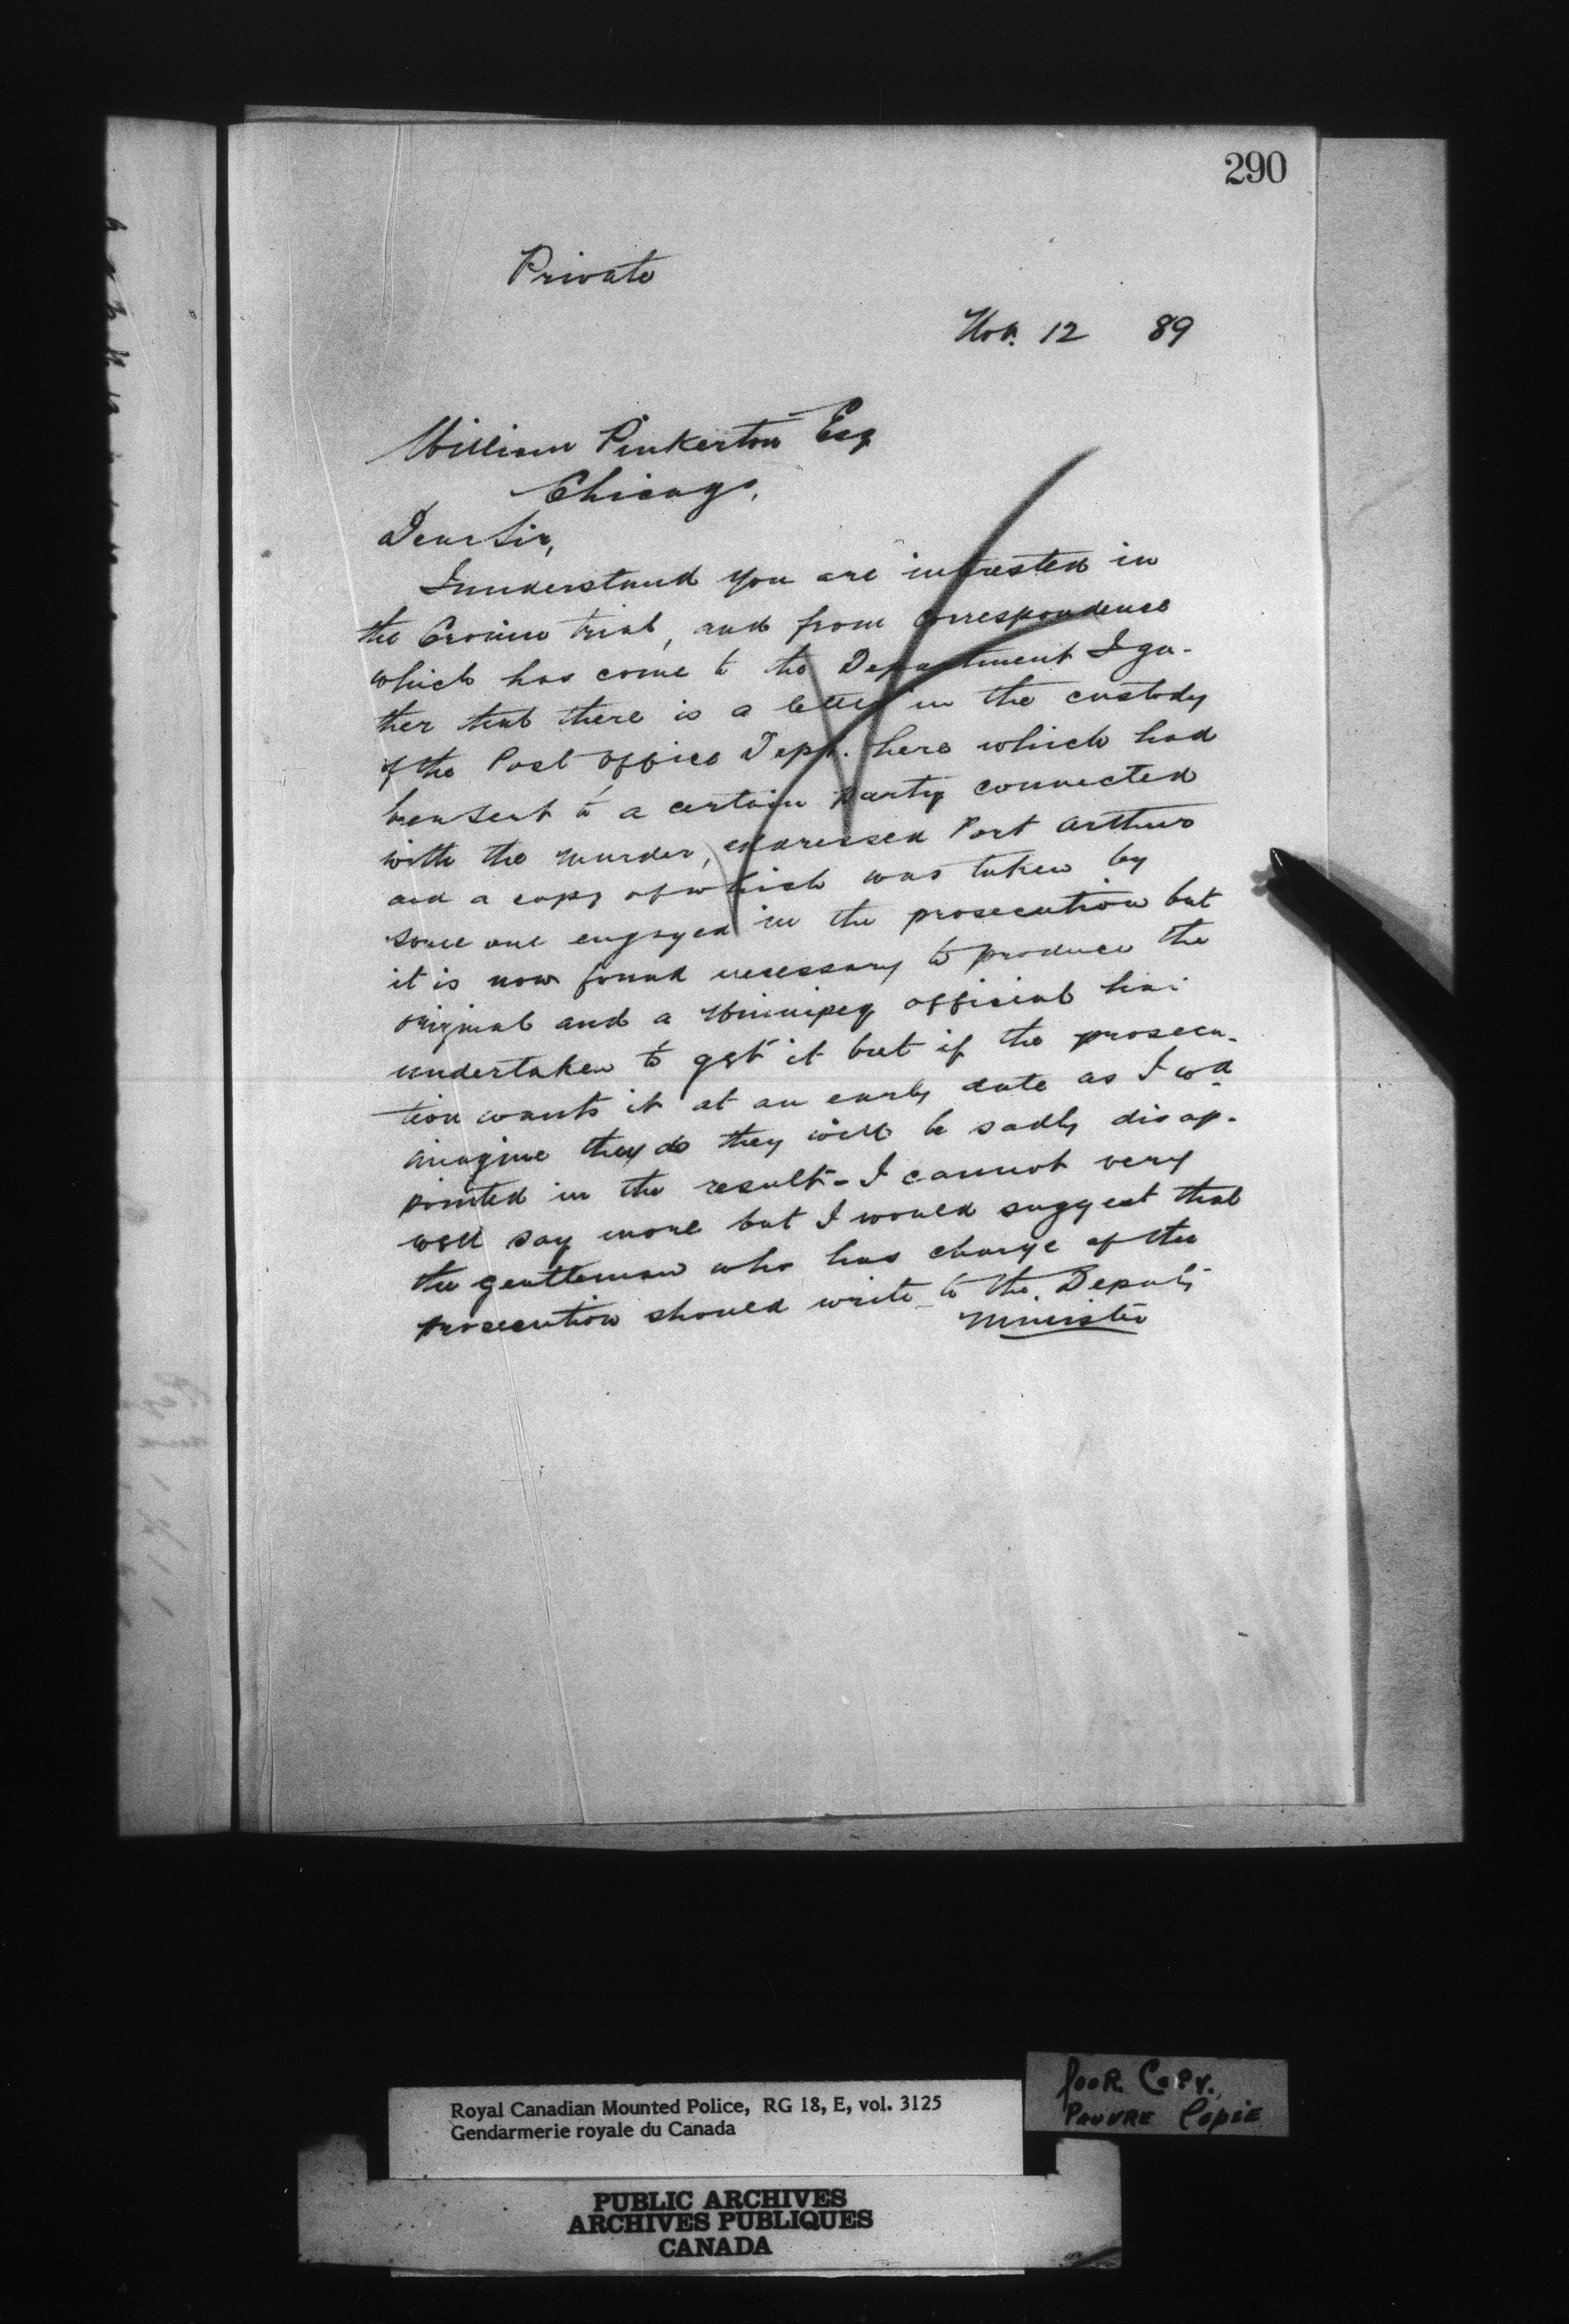 290
Private
Nov. 12 89
William Pinkerton Esq
Chicago,
Dear Sir,
I understand you are interested in
the Cronin trial, and from correspondence
which has come to the Department I ga-
ther that there is a letter in the custody
of the Post Office Dept. here which had
been sent to a certain party connected
with the murder, addressed Port Arthur
and a copy of which was taken by
some one engaged in the prosecution but
it is now found necessary to produce the
original and a Winnipeg official has
undertaken to get it but if the prosecu-
tion wants it at an early date as I wd
imagine they do they will be sadly disap-
pointed in the result - I cannot very
well say more but I would suggest that
the gentleman who has charge of the
prosecution should write to the Deputy
Minister
Poor Copy.
Pauvre Copie
Royal Canadian Mounted Police, RG 18, E, vol. 3125
Gendarmerie royale du Canada
PUBLIC ARCHIVES
ARCHIVES PUBLIQUES
CANADA